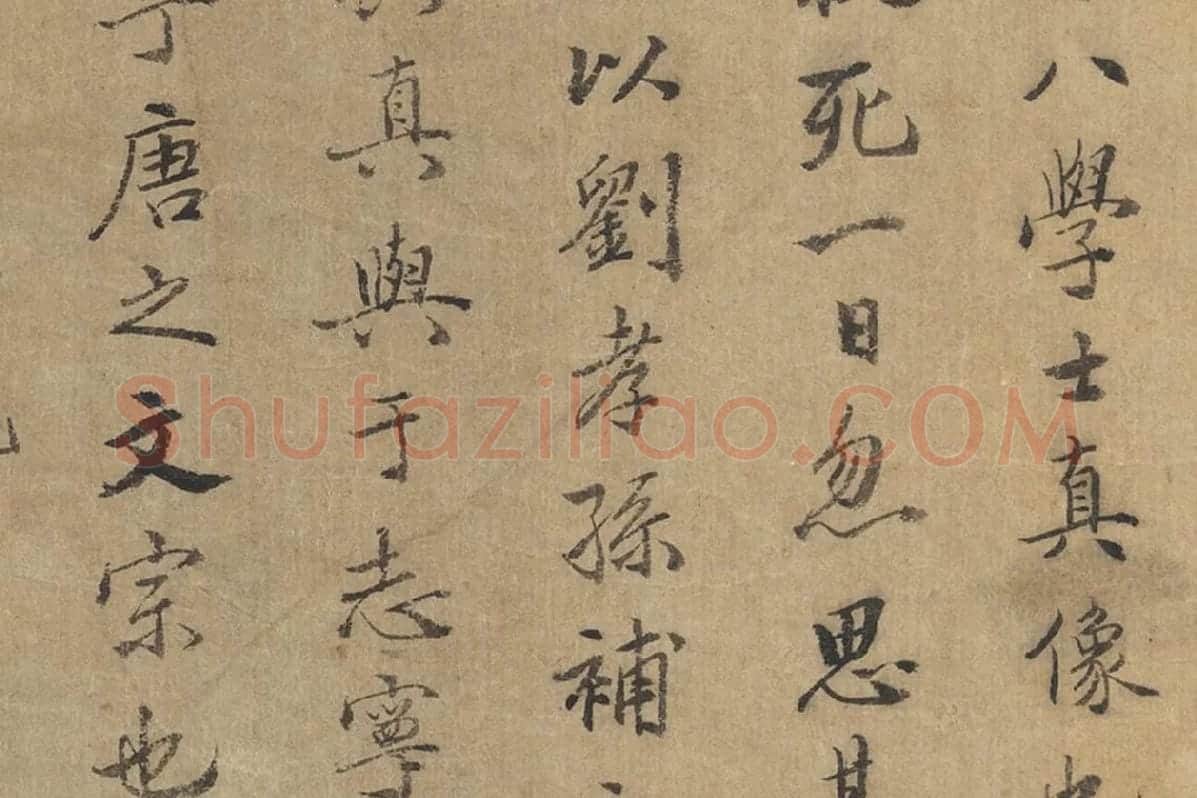 八學士真像
死一日忽思其
以劉孝孫補
真與于志寧
于唐之文宗也
Shufaziliao.COM